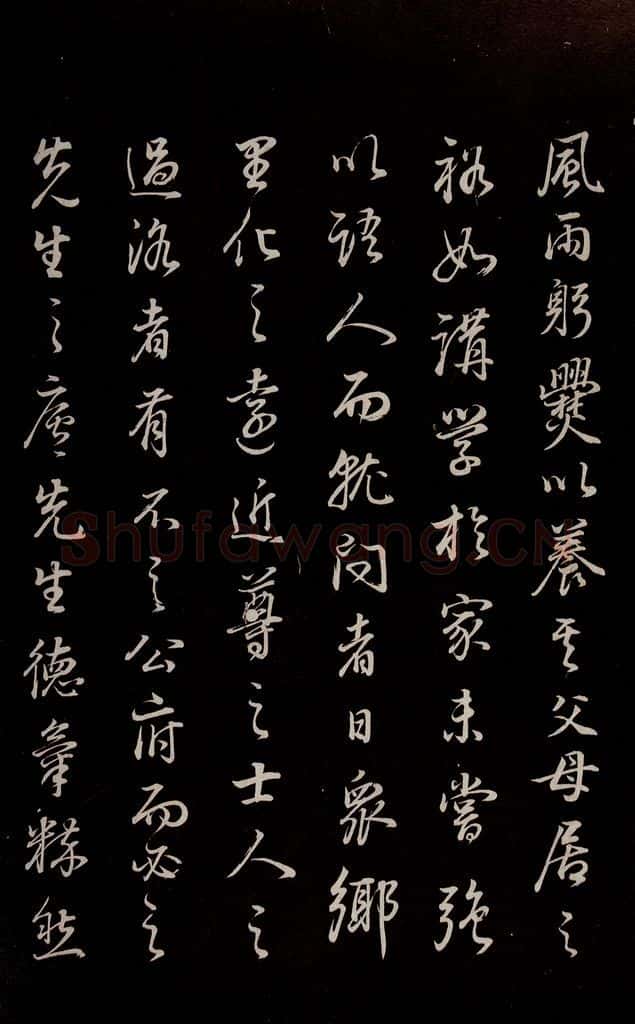 風雨躬爨以養其父母居之
裕如講学於家未嘗強
以語人而就问者日眾鄉
里化之遠近尊之士人之
過洛者有不之公府而必之
先生之廬先生德氣粹然
Shufawang.CN